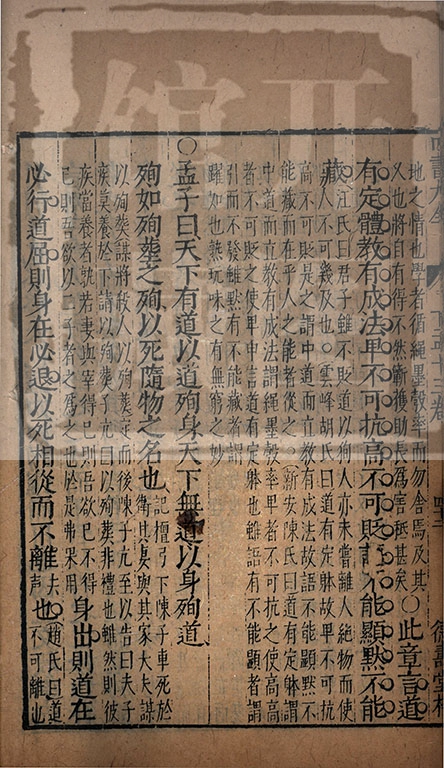 地之情也學者循繩墨彀率而勿舍焉及其
又也將自有得不然躐獲助長爲害甚矣○此章言道
有定體教有成法卑不可抗高不可貶語不能顯默不能
藏○江氏曰君子雖不貶道以狥人亦未嘗離人絕物而使
人不可幾及也○雲峰胡氏曰道有定躰故卑不可抗
高不可貶是之謂中道而立教有成法故語不能顯默不
能藏而在乎人之能者從之○新安陳氏曰道有定躰謂
中道而立教有成法謂繩墨彀率卑者不可抗之使高高
者不可貶之使卑申言道有定躰也雖語有不能顯者謂
引而不發雖默有不能藏者謂
躍如也熟玩味之有無窮之妙
○孟子曰天下有道以道殉身天下無道以身殉道
殉如殉塟之殉以死隨物之名也記檀弓下陳子車死於
衛其妻與其家大夫謀
以殉塟謀將殺人以殉塟定而後陳子亢至以告曰夫子
疾莫養於下請以殉塟子亢曰以殉塟非禮也雖然則彼
疾當養者孰若妻與宰得已則吾欲已不得
已則吾欲以二子者之爲之也於是弗果用身出則道在
必行道屈則身在必退以死相從而不離去聲也○趙氏曰道
不可離也